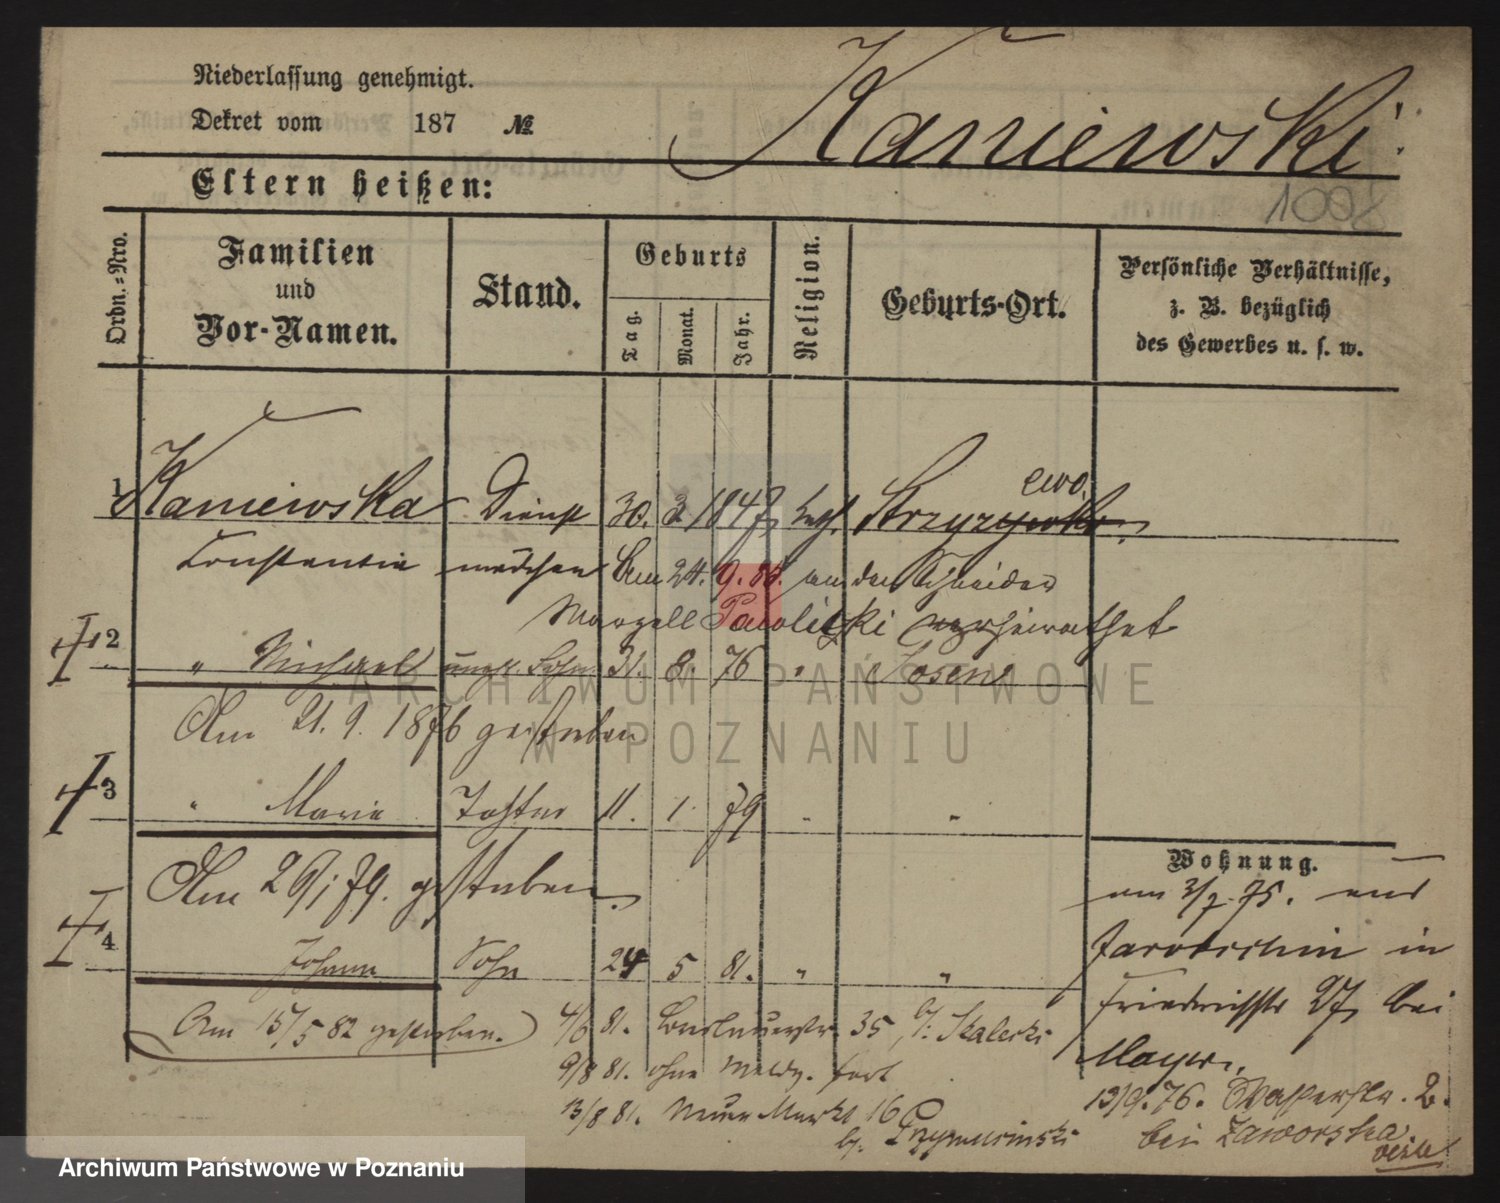 Niederlassung genehmigt.
Dekret vom 187 №
Kaniewski
Eltern heißen:
1002
Ordn.-Nro.
Familien
und
Vor-Namen.
Stand.
Geburts
Tag.
Monat.
Jahr.
Religion.
Geburts-Ort.
Persönliche Verhältnisse,
z. B. bezüglich
des Gewerbes u. s. w.
1 Kaniewska Dienst 30. 3. 1847 kath. Strzyzewko ewo
Constantia mädchen Am 24. 9. 86. an den Schneider
Marzell Pawlitzki verheirathet
2 " Michael unehl. Sohn 31. 8. 76 " Posen
Am 21. 9. 1876 gestorben
3 " Maria Tochter 11. 1. 79 " "
Am 29/1 79. gestorben.
4 Johann Sohn 24 5 81. " "
Am 15/5 82 gestorben.
4/6 81. Breslauerstr. 35, b/: Skalecki
9/8 81. ohne Meldg. fort
13/8 81. Neuer Markt 16
b. Przymusinski
Wohnung.
am 3/7. 75. aus
Jarotschin in
Friedrichstr 27 bei
Mayer.
13/9. 76. Wasserstr. 2.
bei Jaworska
ARCHIWUM PAŃSTWOWE
W POZNANIU
Archiwum Państwowe w Poznaniu